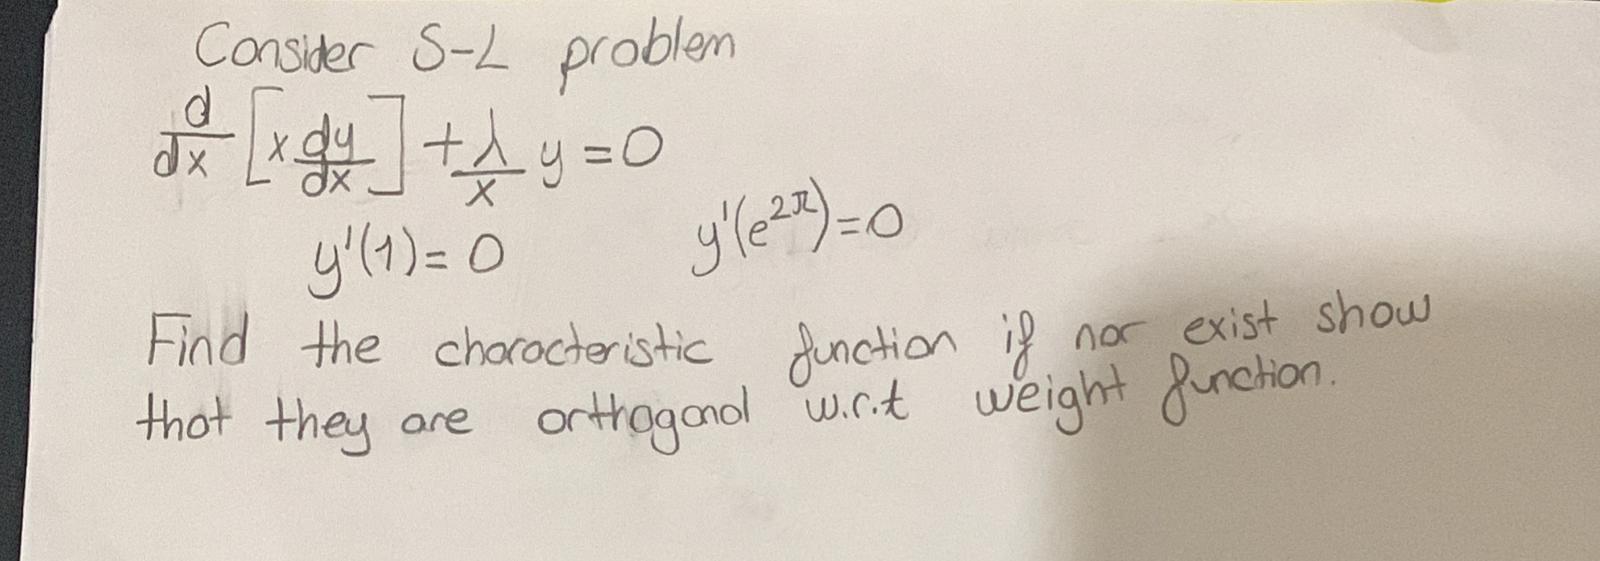 Consider S-L problem
d/dx [x dy/dx] + λ/x y = 0
y'(1) = 0 y'(e^2π) = 0
Find the characteristic function if nor exist show
that they are orthogonal w.r.t weight function.